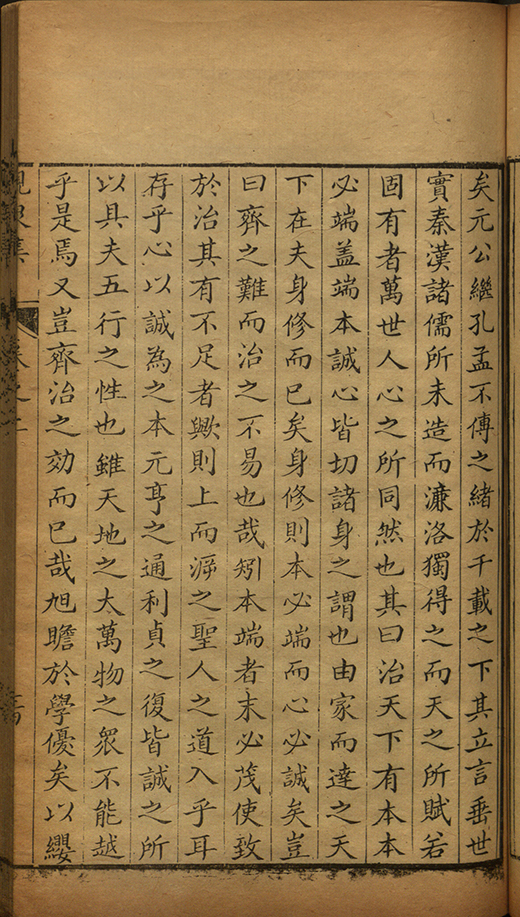 矣元公繼孔孟不傳之緒於千載之下其立言垂世
實秦漢諸儒所未造而濂洛獨得之而天之所賦若
固有者萬世人心之所同然也其曰治天下有本本
必端盖端本誠心皆切諸身之謂也由家而達之天
下在夫身修而已矣身修則本必端而心必誠矣豈
曰齊之難而治之不易也哉矧本端者末必茂使致
於治其有不足者歟則上而泝之聖人之道入乎耳
存乎心以誠為之本元亨之通利貞之復皆誠之所
以具夫五行之性也雖天地之大萬物之衆不能越
乎是焉又豈齊治之効而已哉旭瞻於學優矣以纓